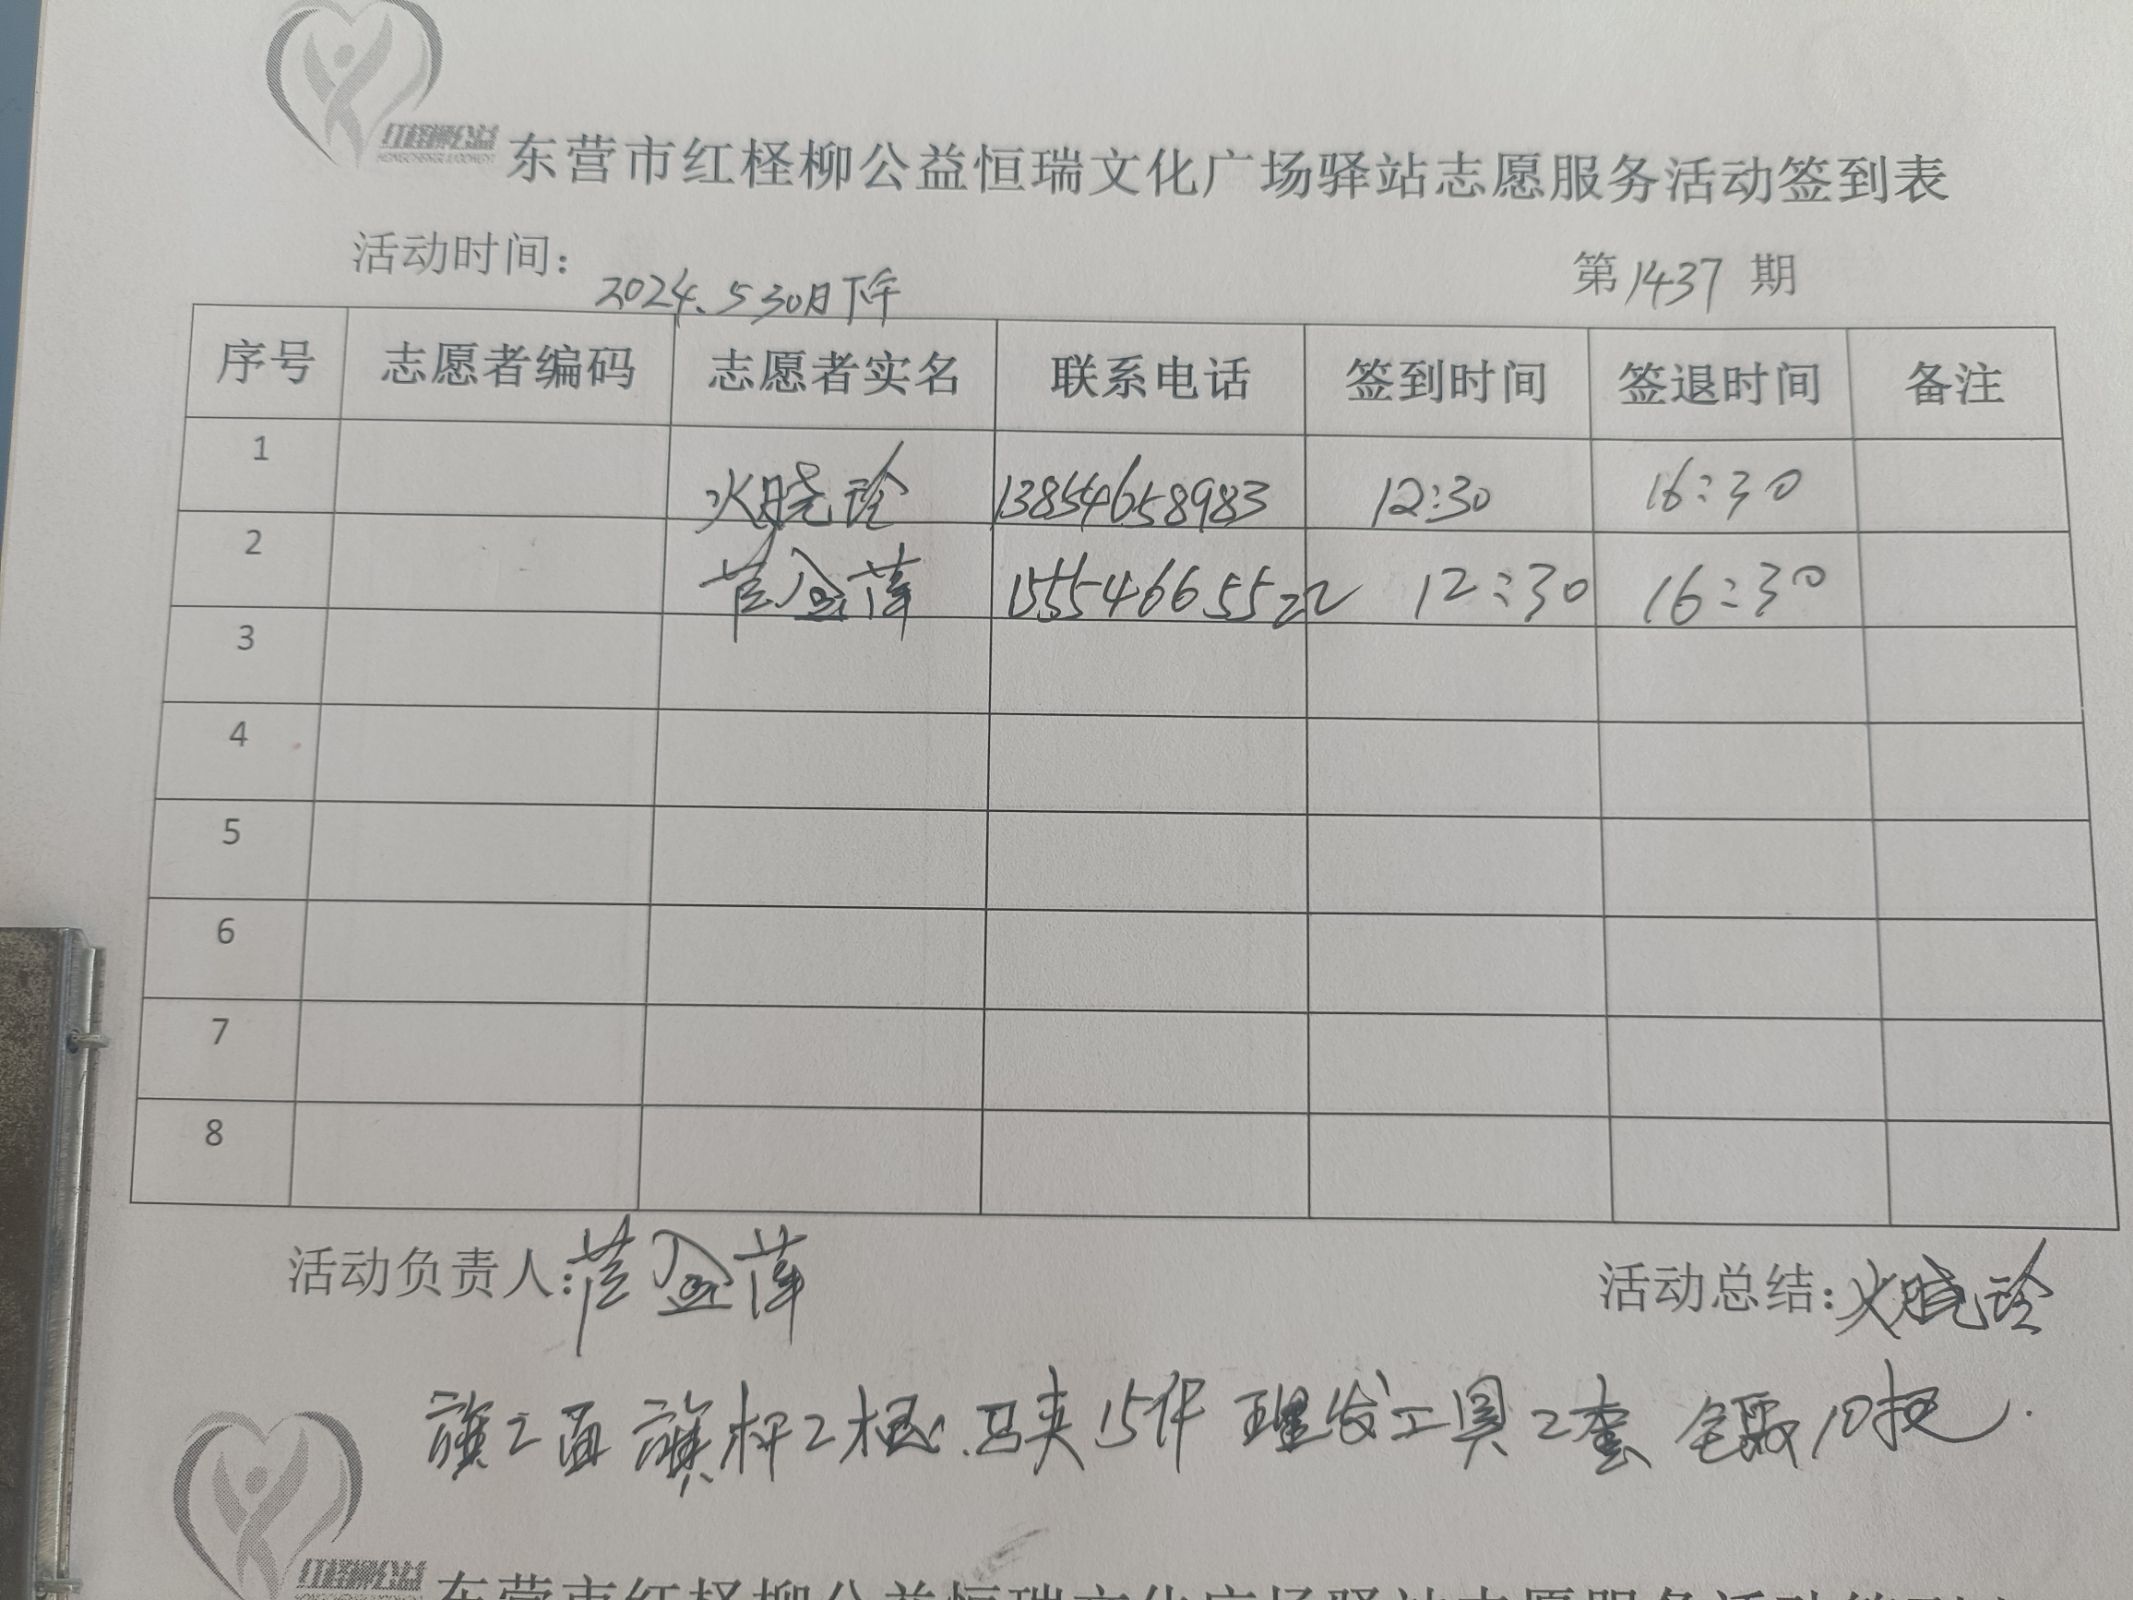 红柽柳公益
HONGCHENGLIUGONGYI
东营市红柽柳公益恒瑞文化广场驿站志愿服务活动签到表
活动时间：2024.5 30日下午 第1437期
序号 志愿者编码 志愿者实名 联系电话 签到时间 签退时间 备注
1 火晓玲 13854658983 12:30 16:30
2 15554665522 12:30 16:30
3
4
5
6
7
8
活动负责人： 活动总结：火晓玲
旗2面 旗杆2根.马夹15件 理发工具2套 10把.
红柽柳公益
东营市红柽柳公益恒瑞文化广场驿站志愿服务活动签到表